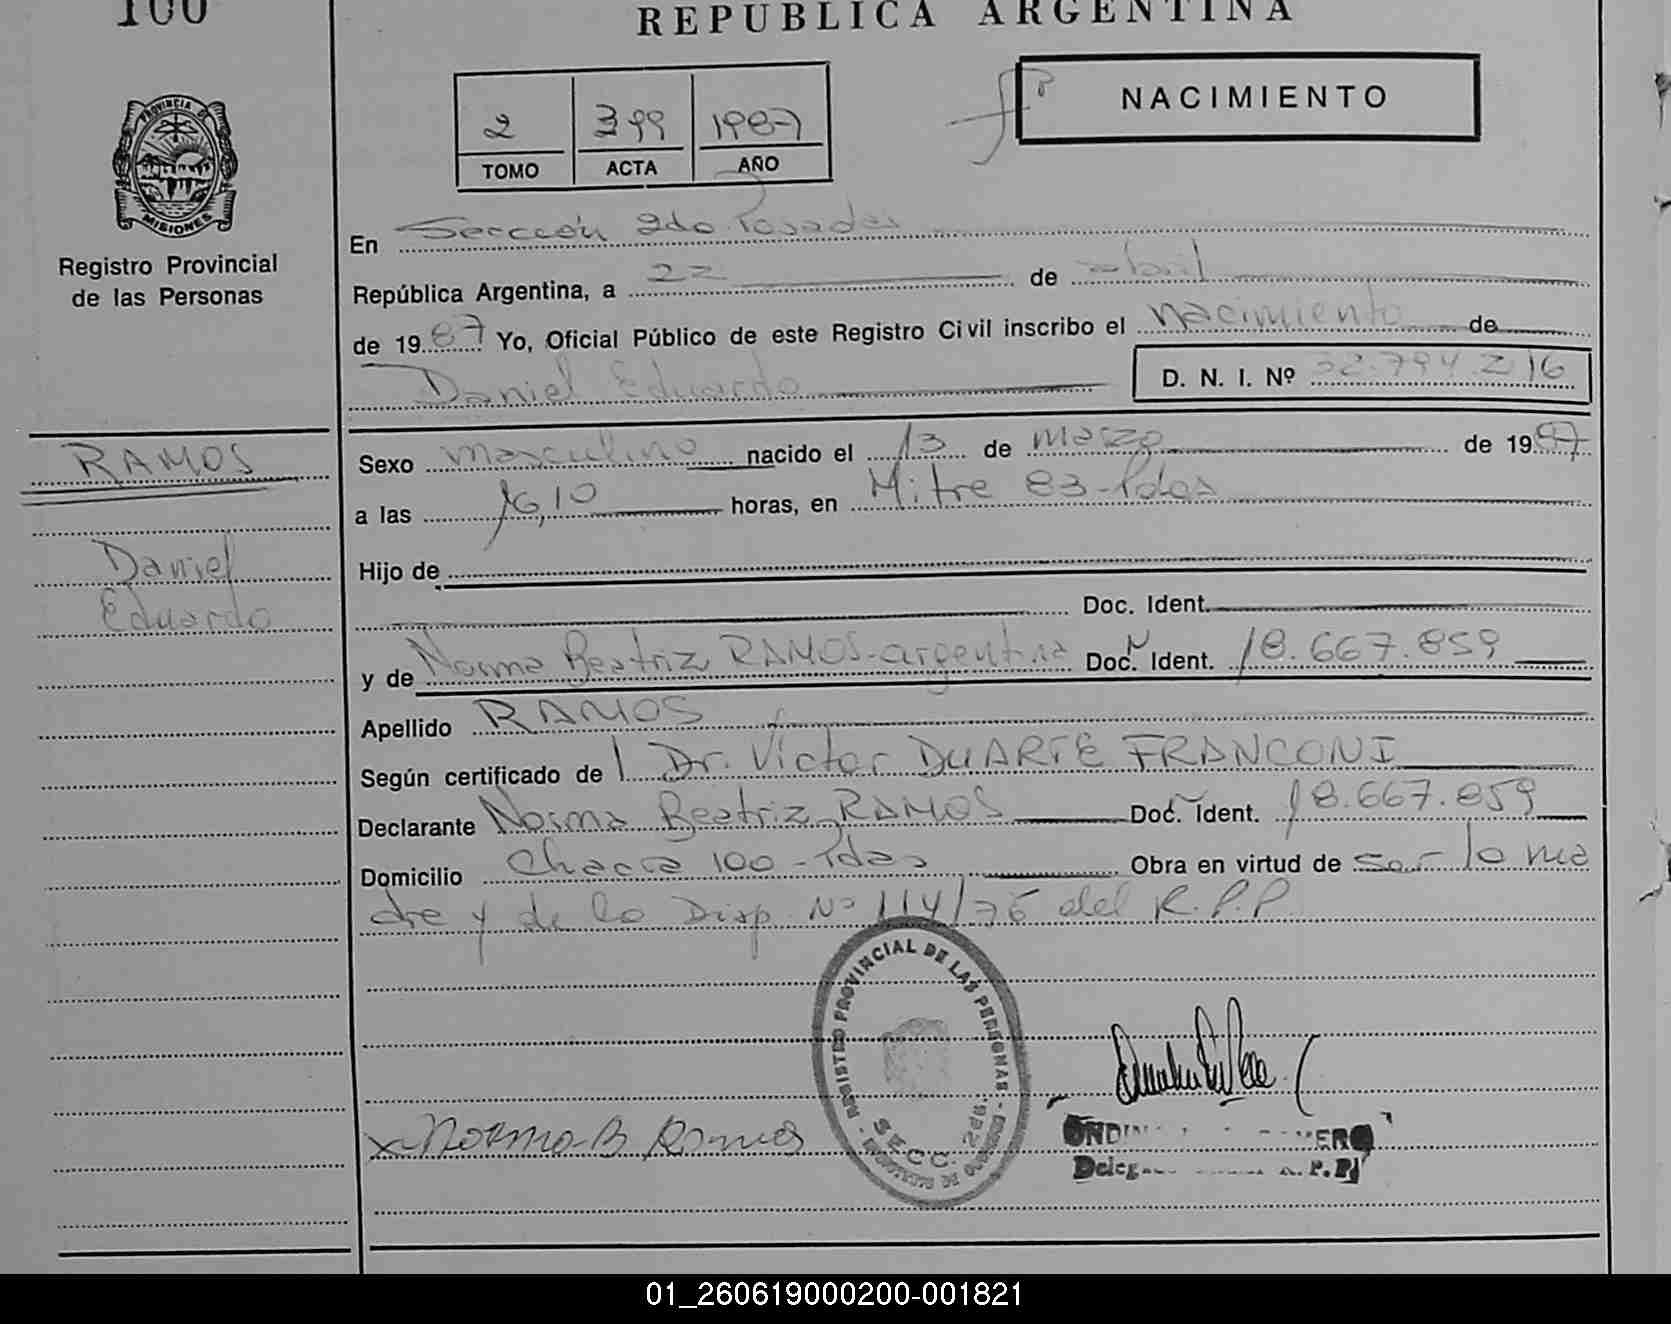 100
REPUBLICA ARGENTINA
NACIMIENTO
2 399 1987
TOMO ACTA AÑO
PROVINCIA DE
MISIONES
Registro Provincial
de las Personas
En Sección 2do Posadas
República Argentina, a 22 de abril
de 1987 Yo, Oficial Público de este Registro Civil inscribo el nacimiento de
Daniel Eduardo D. N. I. Nº 32.794.216
RAMOS
Daniel
Eduardo
Sexo masculino nacido el 13 de marzo de 1987
a las 16,10 horas, en Mitre 83-Pdas
Hijo de
Doc. Ident.
y de Norma Beatriz RAMOS-argentina Doc. Ident. N 18.667.859
Apellido RAMOS
Según certificado de l Dr. Víctor DUARTE FRANCONI
Declarante Norma Beatriz RAMOS Doc. Ident. 18.667.859
Domicilio Chacra 100-Pdas Obra en virtud de ser la ma
dre y de la Disp. Nº 114/76 del R.P.P.
REGISTRO PROVINCIAL DE LAS PERSONAS
SECC. 2da.
x Norma B Ramos
01_260619000200-001821